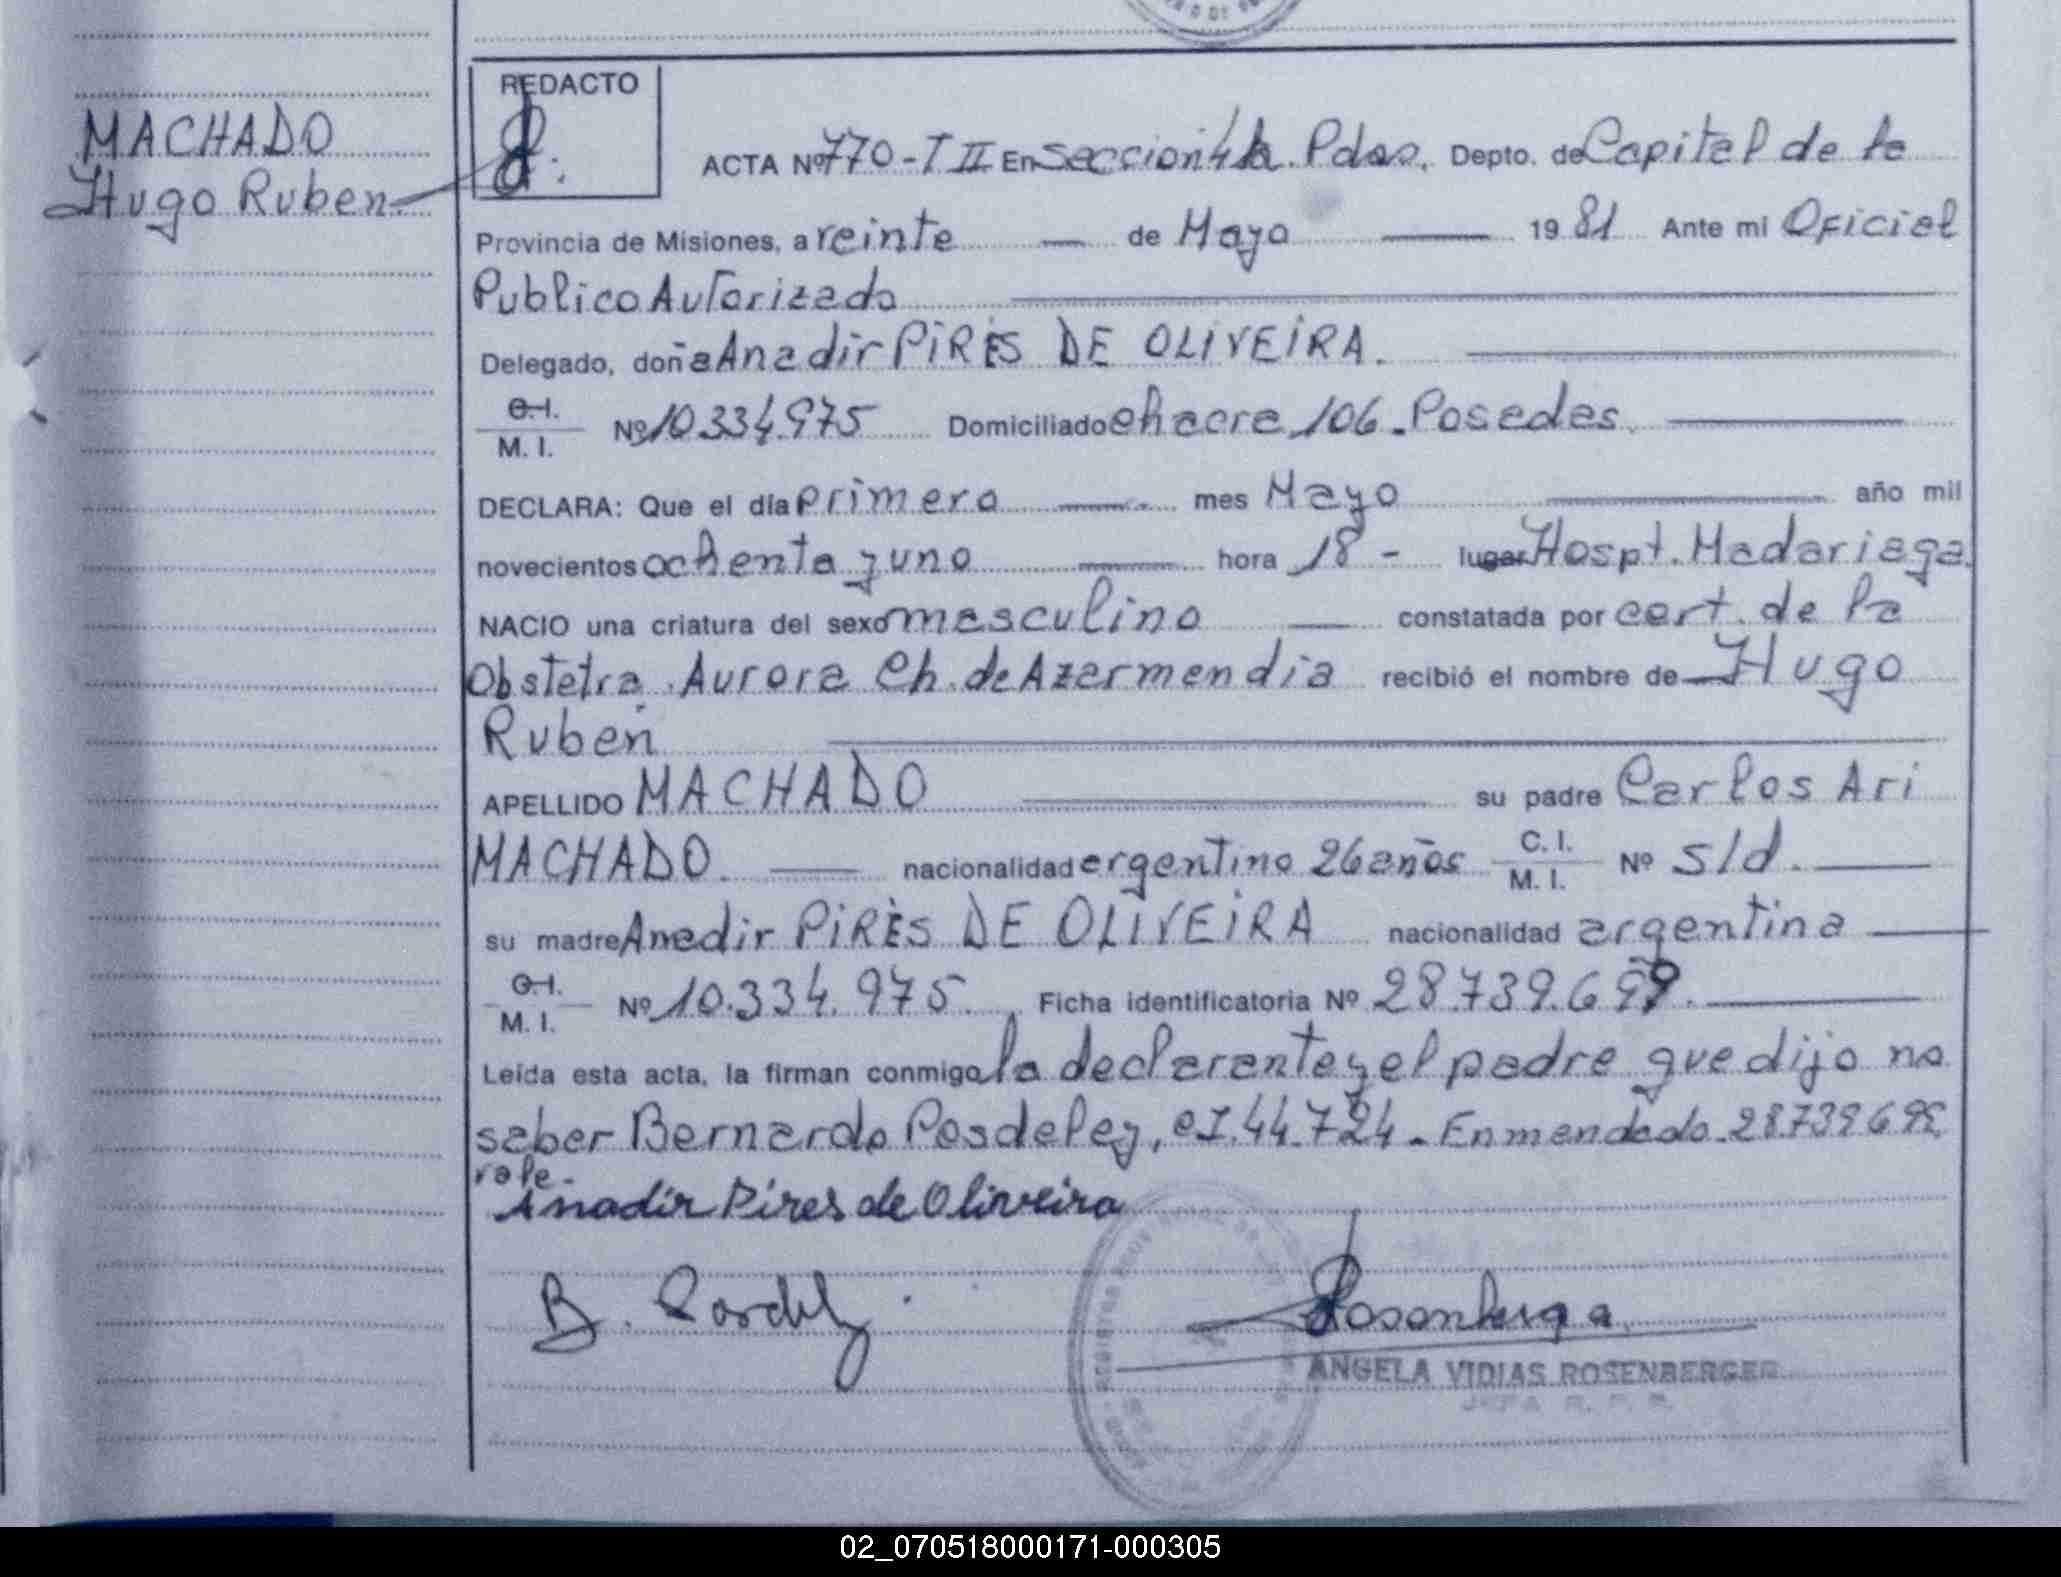 MACHADO
Hugo Ruben.
REDACTO
ACTA Nº 770-T II En Seccion 4ta. Pdas. Depto. de Capital de la
Provincia de Misiones, a veinte de Mayo 1981 Ante mi Oficial
Publico Autorizado
Delegado, doña Anadir PIRES DE OLIVEIRA.
C.I. M. I. Nº 10.334.975 Domiciliado chacra 106. Posadas.
DECLARA: Que el día primero mes Mayo año mil
novecientos ochenta y uno hora 18 - lugar Hospt. Madariaga.
NACIO una criatura del sexo masculino constatada por cert. de la
Obstetra. Aurora Ch. de Azarmendia recibió el nombre de Hugo
Ruben
APELLIDO MACHADO su padre Carlos Ari
MACHADO. nacionalidad argentino 26 años C. I. M. I. Nº s/d.
su madre Anadir PIRES DE OLIVEIRA nacionalidad argentina
C.I. M. I. Nº 10.334.975. Ficha identificatoria Nº 28.739.699.
Leída esta acta, la firman conmigo la declarante y el padre que dijo no
saber Bernardo CI. 44.724. Enmendado. 28739699,
vale.
Anadir Pires de Oliveira
B.
Rosenberg
ANGELA VIDIAS ROSENBERGER
JEFA R. P. P.
02_070518000171-000305